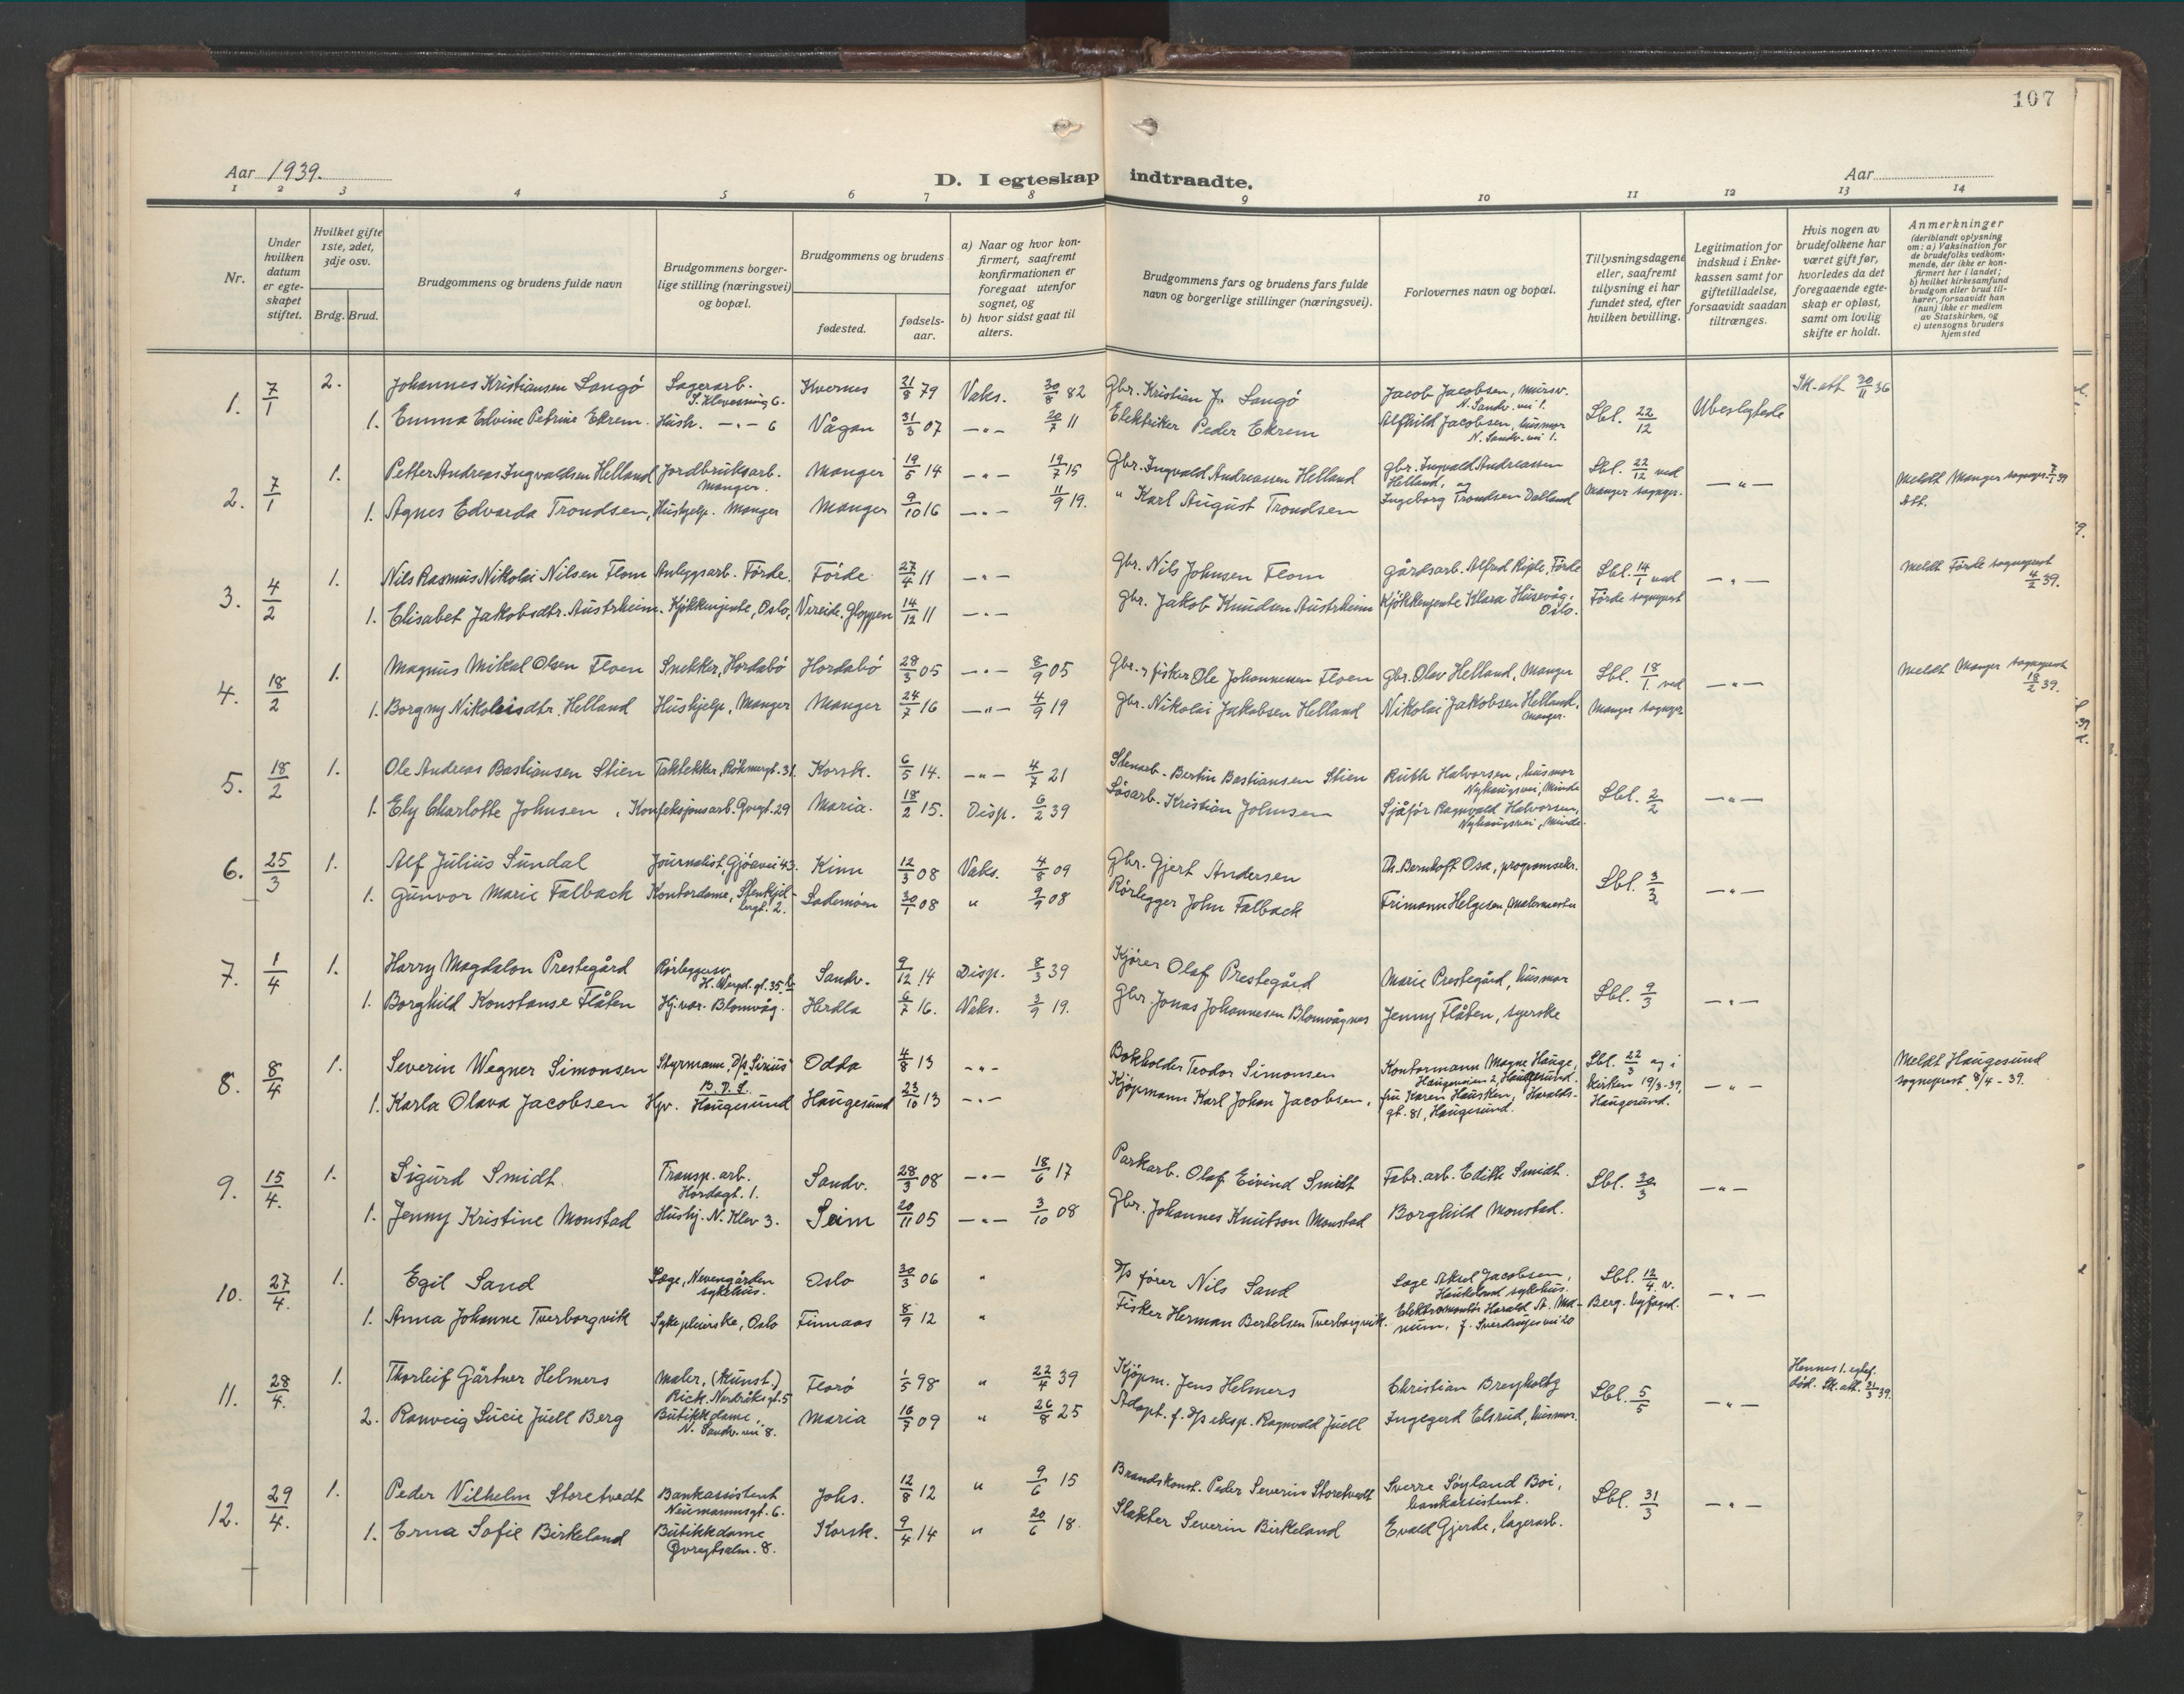 107
Aar 1939.
D. I egteskap indtraadte.
Aar
1 2 3 4 5 6 7 8 9 10 11 12 13 14
Nr.
Under hvilken datum er egte-skapet stiftet.
Hvilket gifte 1ste, 2det, 3dje osv.
Brdg. Brud.
Brudgommens og brudens fulde navn
Brudgommens borger-lige stilling (næringsvei) og bopæl.
Brudgommens og brudens
fødested.
fødsels-aar.
a) Naar og hvor kon-firmert, saafremt konfirmationen er foregaat utenfor sognet, og
b) hvor sidst gaat til alters.
Brudgommens fars og brudens fars fulde navn og borgerlige stillinger (næringsvei).
Forlovernes navn og bopæl.
Tillysningsdagene eller, saafremt tillysning ei har fundet sted, efter hvilken bevilling.
Legitimation for indskud i Enke-kassen samt for giftetilladelse, forsaavidt saadan tiltrænges.
Hvis nogen av brudefolkene har været gift før, hvorledes da det foregaaende egte-skap er opløst, samt om lovlig skifte er holdt.
Anmerkninger
(deriblandt oplysning om: a) Vaksination for de brudefolks vedkom-mende, der ikke er kon-firmert her i landet; b) hvilket kirkesamfund brudgom eller brud til-hører, forsaavidt han (hun) ikke er medlem av Statskirken, og c) utensogns bruders hjemsted
1. 7/1 2. Johannes Kristiansen Langö Lagerarb. Kvernes 21/8 79 Vaks. 30/8 82 Gbr. Kristian J. Langö Jacob Jacobsen, mursv. N. Sandv. vei 1. Sbl. 22/12 Ubeslegtede Sk. att. 30/11 36
1. Emma Edvine Petrine Ekrem. Hush. -"- 6 Vågan 31/3 07 -"- 20/7 11 Elektriker Peder Ekrem Alfhild Jacobsen, husmor N. Sandv. vei 1.
2. 7/1 1. Petter Andreas Ingvaldsen Helland Jordbruksarb. Manger. Manger 19/5 14 -"- 19/7 15 Gbr. Ingvald Andreassen Helland gbr. Ingvald Andreassen Helland, og Sbl. 22/12 ved Manger sognepr. -"- Meldt Manger sognepr. 7/1 39 Att.
1. Agnes Edvarda Trondsen, Hushjelp. Manger Manger 9/10 16 -"- 11/9 19. " Karl August Trondsen Ingeborg Trondsen Dalland
3. 4/2 1. Nils Rasmus Nikolai Nilsen Flom Anleggsarb. Förde. Förde 27/4 11 -"- Gbr. Nils Johnsen Flom gårdsarb. Alfred Riple, Förde Sbl. 14/1 ved Förde sogneprest -"- Meldt Förde sogneprest 4/2 39.
1. Elisabet Jakobsdtr. Austrheim. Kjökkenjente, Oslo, Vereide. Gloppen 14/12 11 -"- Gbr. Jakob Knudsen Austrheim Kjökkenjente Klara Husevåg, Oslo.
4. 18/2 1. Magnus Mikal Olsen Floen Snekker, Hordabö Hordabö 28/3 05 -"- 8/9 05 Gbr. og fisker Ole Johannessen Floen gbr. Olav Helland, Manger Sbl. 18/1 ved Manger sognepr -"- Meldt Manger sogneprest 18/2 39.
1. Borgny Nikolaisdtr. Helland Hushjelp, Manger Manger 24/7 16 -"- 4/9 19 Gbr. Nikolai Jakobsen Helland Nikolai Jakobsen Helland, Manger.
5. 18/2 1. Ole Andreas Bastiansen Stien Taktekker, 31 Korsk. 6/5 14. -"- 4/7 21 Stenarb. Bertin Bastiansen Stien Ruth Halvorsen, husmor Nyhaugsvei, Minde Sbl. 2/2 -"-
1. Ely Charlotte Johnsen, Konfeksjonsarb. Øvregt. 29 Maria. 18/2 15. Disp. 6/2 39 Lösarb. Kristian Johnsen Sjåfør Ragnvald Halvorsen, Nyhaugsvei, Minde.
6. 25/3 1. Alf Julius Sundal Journalist, 43. Kinn 12/3 08 Vaks. 4/8 09 Gbr. Gjert Andersen Th. Bernhoft Osa, programsekr. Sbl. 3/3 -"-
1. Gunvor Marie Falback Kontordame, Stenkjel-lergt. 2. Lademoen 30/1 08 " 9/9 08 Rörlegger John Falback Frimann Helgesen, Malermester
7. 1/4 1. Harry Magdalon Prestegård Rörleggersv. H. Wergel. gt. 35 b Sandv. 9/12 14 Disp. 8/3 39 Kjörer Olaf Prestegård Marie Prestegård, husmor Sbl. 9/3 -"-
1. Borghild Konstanse Flåten Hj. vær. Blomvåg. Herdla 6/7 16. Vaks. 3/9 19. Gbr. Jonas Johannesen Blomvågnes Jenny Flåten, syerske
8. 8/4 1. Severin Wegner Simonsen Styrmann, D/s Sirius B.D.S. Odda 4/8 13 -"- Bokholder Teodor Simonsen Kontormann Magne Hauge, Haugeveien 2, Haugesund. Sbl. 22/3 og i kirken 19/3-39, Haugesund. -"- Meldt Haugesund sogneprest 8/4 - 39.
1. Karla Olava Jacobsen Hpv. Haugesund Haugesund 23/10 13 -"- Kjöpmann Karl Johan Jacobsen, fru Karen Hausken, Haralds-gt. 81, Haugesund.
9. 15/4. 1. Sigurd Smidt. Transp. arb. Hordagt. 1. Sandv. 28/3 08 -"- 18/6 17 Parkarb. Olaf Eivind Smidt Fabr. arb. Edith Smidt. Sbl. 30/3 -"-
1. Jenny Kristine Monstad Hushj. N. Klev 3. Seim 20/11 05 -"- 3/10 08 Gbr. Johannes Knutson Monstad Borghild Monstad.
10. 27/4. 1. Egil Sand Læge, Nevengården sykehus. Oslo 30/3 06 " D/s förer Nils Sand Læge Aksel Jacobsen, Haukeland sykehus. Sbl. 12/4. v. Berg. byfogd. -"-
1. Anna Johanne Tverborgvik Sykepleierske, Oslo Finnaas 8/9 12 " Fisker Herman Bertelsen Tverborgvik. Elektromontör Harald J. Sverdrupsvei 20
11. 28/4. 1. Thorleif Gärtner Helmers Maler, (Kunst.) Rick. Nordråksgt. 5 Florö 1/5 98 " 22/4 39 Kjöpm. Jens Helmers Christian Breyholtz Sbl. 5/5 -"- Hennes 1. egtef. död. Sk. att. 31/3 39.
2. Ranveig Lucie Juell Berg Butikkdame, N. Sandv. vei 8. Maria 16/7 09 " 26/8 25 Adopt. f. D/s eksp. Ragnvald Juell Ingegerd Elsrud, husmor.
12. 29/4. 1. Peder Vilhelm Storetvedt Bankassistent Neumannsgt. 6. Johs. 12/8 12 " 9/6 15 Brandskonst. Peder Severin Storetvedt Sverre Söyland Boi, bankassistent. Sbl. 31/3 -"-
1. Erna Sofie Birkeland Butikkdame Øvregtsalm. 8. Korsk. 9/4 14 " 20/6 18. Slakter Severin Birkeland Evald Gjerde, lagerarb.